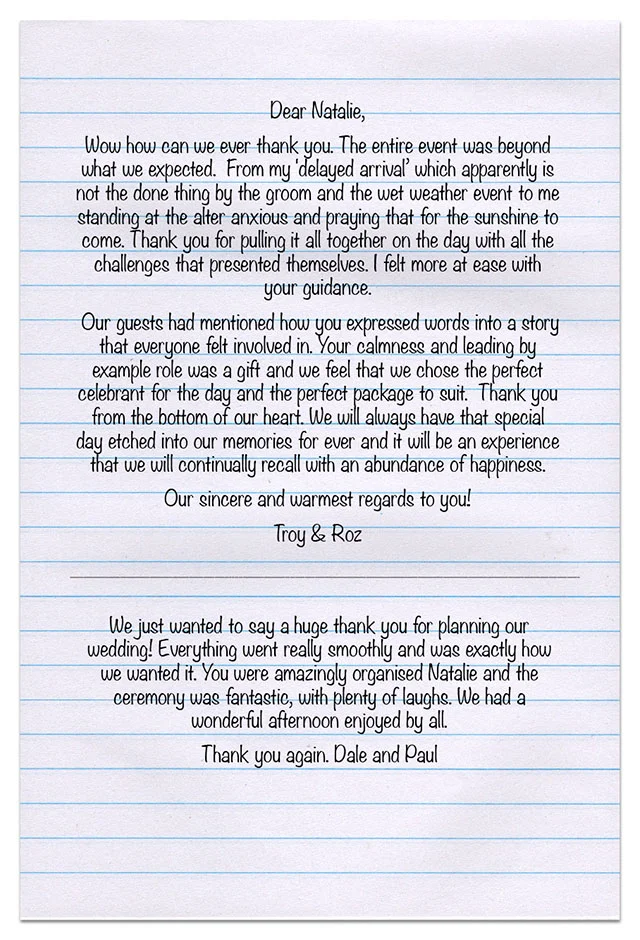 Dear Natalie,
Wow how can we ever thank you. The entire event was beyond
what we expected. From my 'delayed arrival' which apparently is
not the done thing by the groom and the wet weather event to me
standing at the alter anxious and praying that for the sunshine to
come. Thank you for pulling it all together on the day with all the
challenges that presented themselves. I felt more at ease with
your guidance.
Our guests had mentioned how you expressed words into a story
that everyone felt involved in. Your calmness and leading by
example role was a gift and we feel that we chose the perfect
celebrant for the day and the perfect package to suit. Thank you
from the bottom of our heart. We will always have that special
day etched into our memories for ever and it will be an experience
that we will continually recall with an abundance of happiness.
Our sincere and warmest regards to you!
Troy & Roz
We just wanted to say a huge thank you for planning our
wedding! Everything went really smoothly and was exactly how
we wanted it. You were amazingly organised Natalie and the
ceremony was fantastic, with plenty of laughs. We had a
wonderful afternoon enjoyed by all.
Thank you again. Dale and Paul